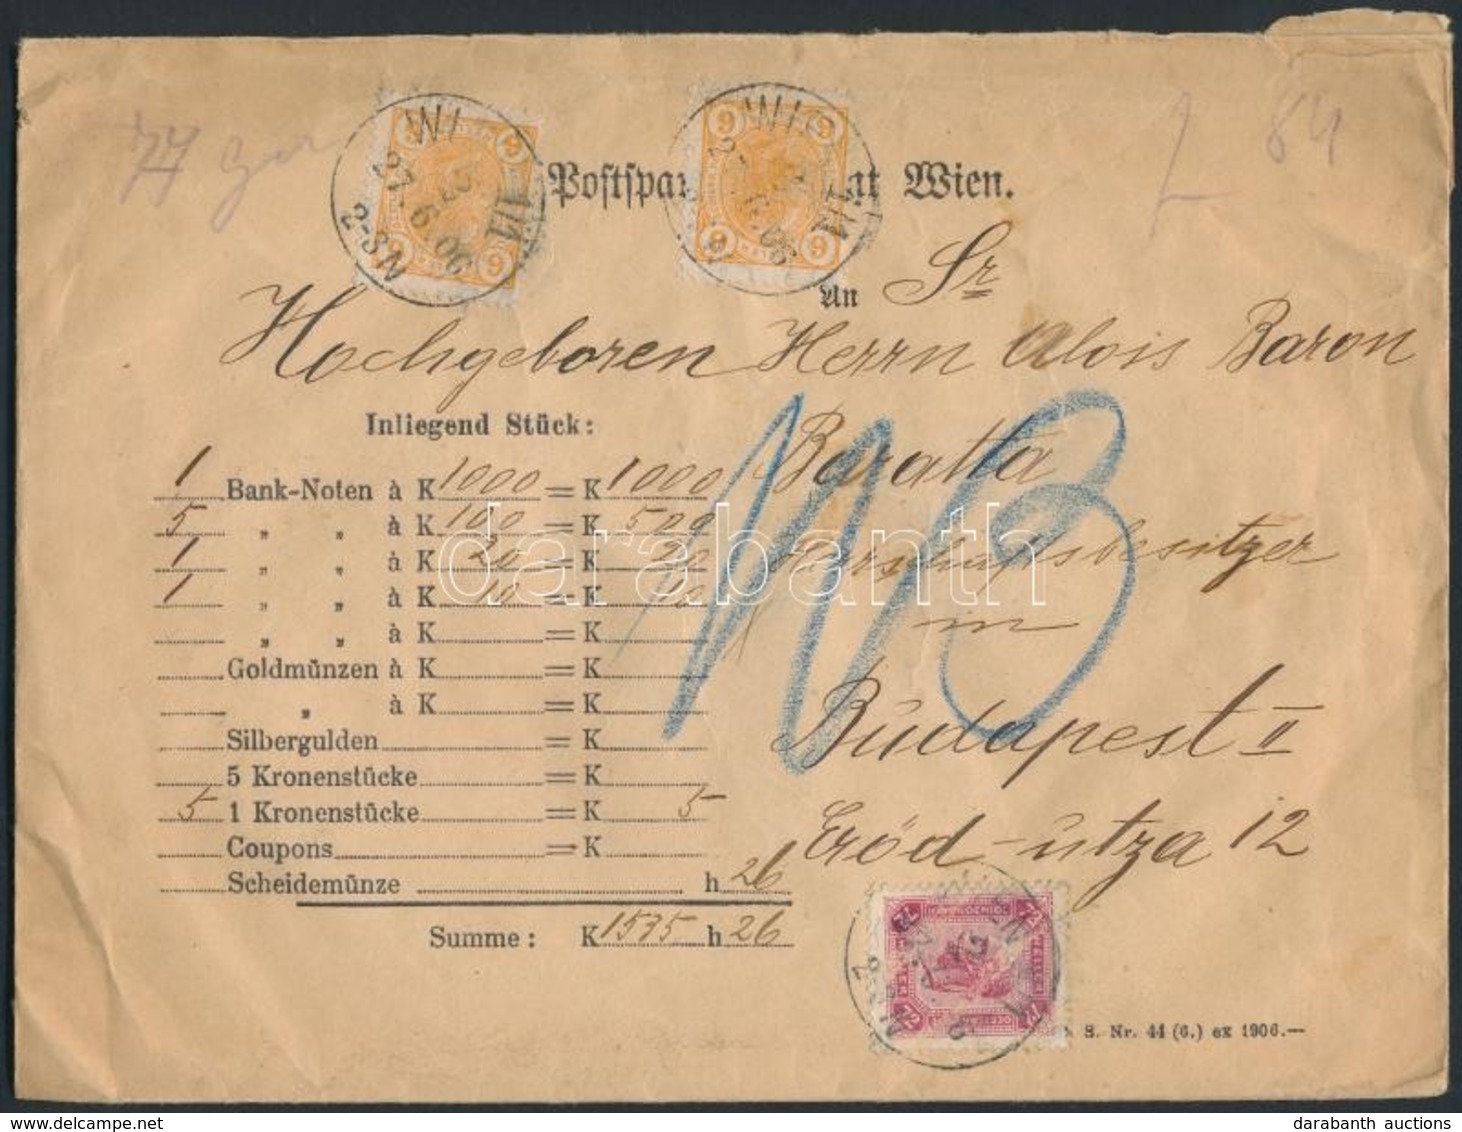 77 gr
L 84
WI
27. 6. 06
2-3N
VII
6 6 6 6
Postspar at Wien.
An Sr
Hochgeboren Herrn Alois Baron
Baratta
Herrschaftsbesitzer
in
Budapest II
Eröd-utza 12
Inliegend Stück:
1 Bank-Noten à K 1000 = K 1000
5 „ „ à K 100 = K 500
1 „ „ à K 20 = K 20
1 „ „ à K 10 = K 10
„ „ à K = K
Goldmünzen à K = K
„ à K = K
Silbergulden = K
5 Kronenstücke = K
5 1 Kronenstücke = K 5
Coupons = K
Scheidemünze h 26
Summe: K 1535 h 26
72 72 72 72
S. Nr. 44 (6.) ex 1906.—
darabanth
darabanth auctions